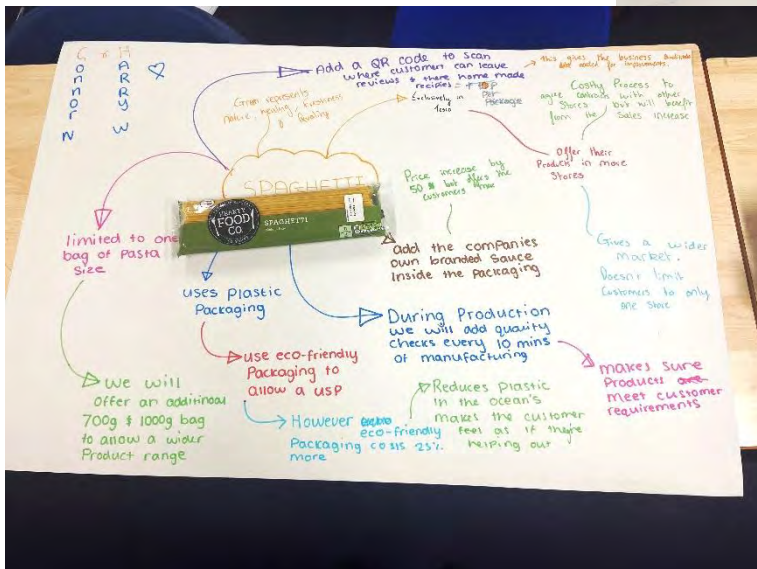 Connor N
HARRY W
Add a QR code to scan
where customer can leave
reviews & there home made
recipies = + 10P
Per
Package
this gives the business
Green represents
nature, healing, freshness
&
Exclusively in
Tesco
Costly Process to
agree contracts with other
Stores but will benefit
from the Sales increase
Offer their
Product in more
Stores
Gives a wider
market.
Doesn't limit
Customers to only
one store
SPAGHETTI
HEARTY
FOOD
CO.
SPAGHETTI
Price increase by
50 % but gives the
customers more
add the companies
own branded Sauce
Inside the packaging
limited to one
bag of Pasta
size
We will
Offer an additinoal
700g & 1000g bag
to allow a wider
Product range
uses Plastic
Packaging
use eco-friendly
Packaging to
allow a USP
However
eco-friendly
Packaging costs 25%
more
Reduces plastic
in the ocean's
makes the customer
feel as if they're
helping out
During Production
we will add quality
checks every 10 mins
of manufacturing
makes sure
Products
meet customer
requirements